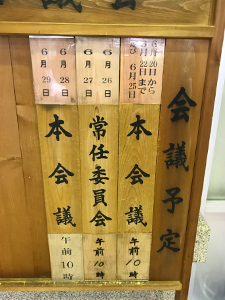 会議予定
6月20日から
6月22日まで
及び6月25日
本会議
午前10時
6月26日
6月27日
常任委員会
午前10時
6月28日
6月29日
本会議
午前10時